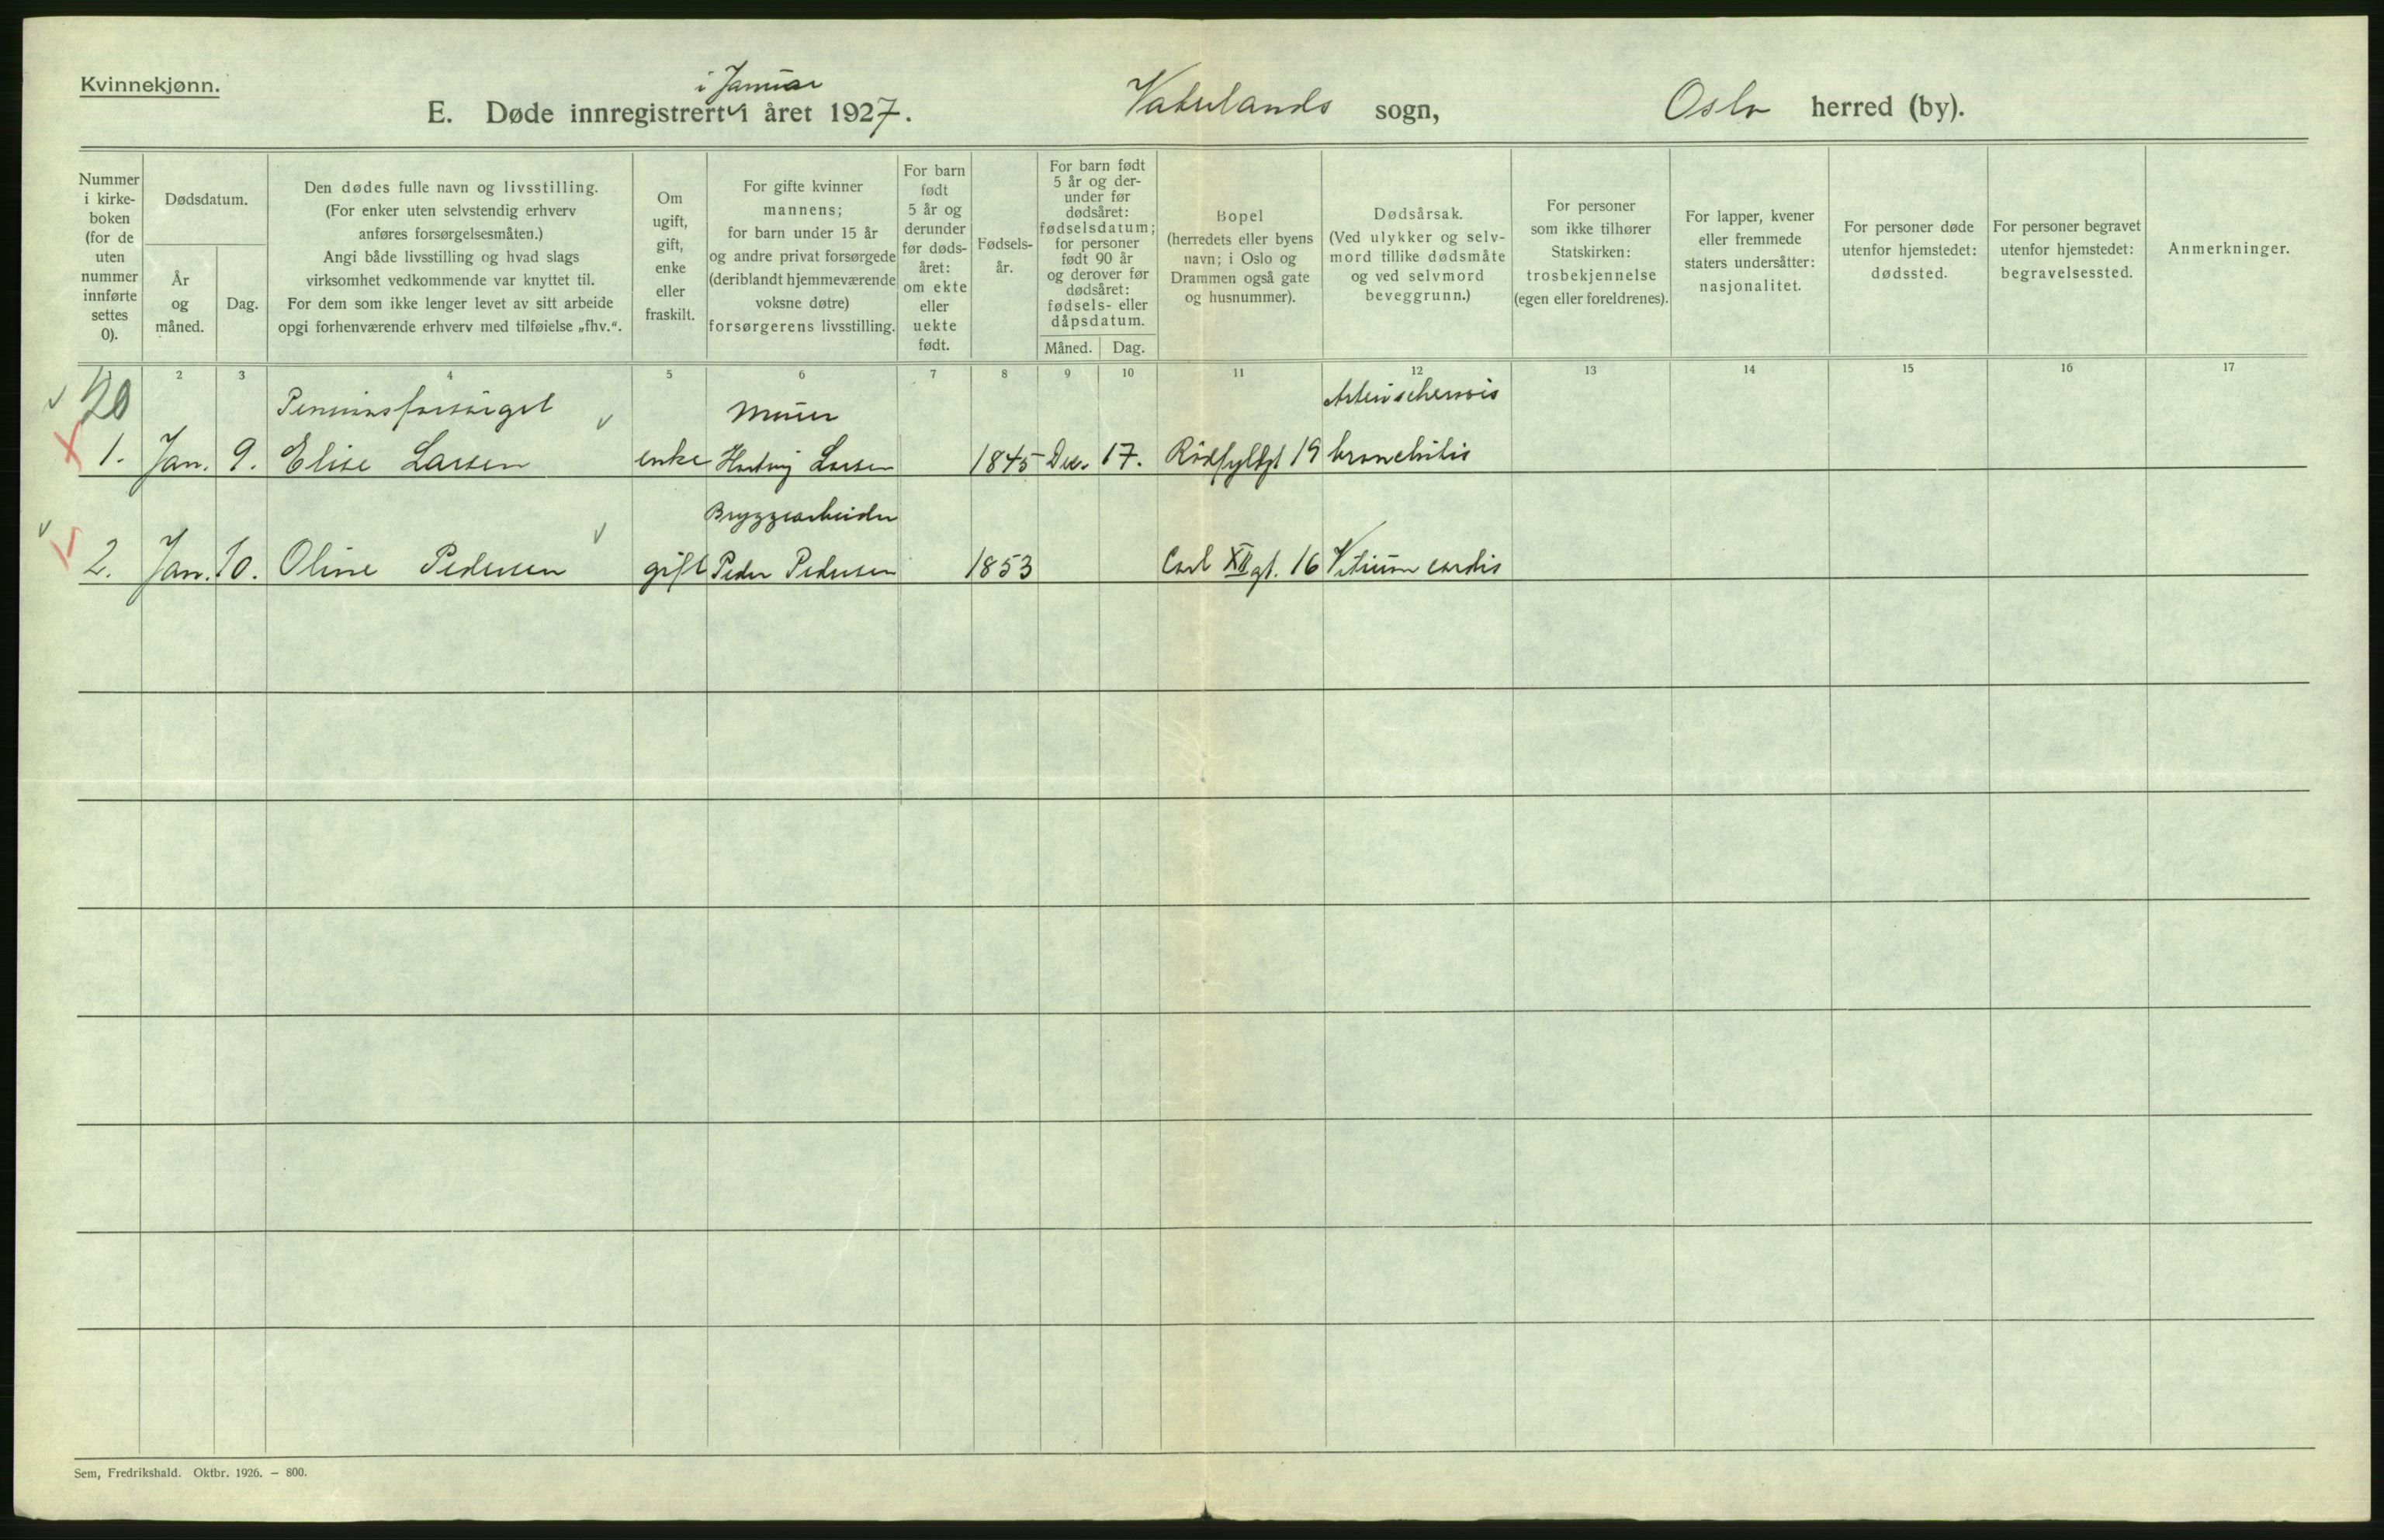 Kvinnekjønn.
i Januar
E. Døde innregistrert i året 1927.
Vaterlands sogn,
Oslo herred (by).
Nummer i kirke-boken (for de uten nummer innførte settes 0).
Dødsdatum.
År og måned.
Dag.
Den dødes fulle navn og livsstilling.
(For enker uten selvstendig erhverv
anføres forsørgelsesmåten.)
Angi både livsstilling og hvad slags
virksomhet vedkommende var knyttet til.
For dem som ikke lenger levet av sitt arbeide
opgi forhenværende erhverv med tilføielse „fhv.“.
Om
ugift,
gift,
enke
eller
fraskilt.
For gifte kvinner
mannens;
for barn under 15 år
og andre privat forsørgede
(deriblandt hjemmeværende
voksne døtre)
forsørgerens livsstilling.
For barn
født
5 år og
derunder
før døds-
året:
om ekte
eller
uekte
født.
Fødsels-
år.
For barn født
5 år og der-
under før
dødsåret:
fødselsdatum;
for personer
født 90 år
og derover før
dødsåret:
fødsels- eller
dåpsdatum.
Måned.
Dag.
Bopel
(herredets eller byens
navn; i Oslo og
Drammen også gate
og husnummer).
Dødsårsak.
(Ved ulykker og selv-
mord tillike dødsmåte
og ved selvmord
beveggrunn.)
For personer
som ikke tilhører
Statskirken:
trosbekjennelse
(egen eller foreldrenes).
For lapper, kvener
eller fremmede
staters undersåtter:
nasjonalitet.
For personer døde
utenfor hjemstedet:
dødssted.
For personer begravet
utenfor hjemstedet:
begravelsessted.
Anmerkninger.
2 3 4 5 6 7 8 9 10 11 12 13 14 15 16 17
20
Pensionsforsørget
Murer
Arteriosclerosis
1. Jan. 9. Elise Larsen enke Hartvig Larsen 1845 Dec. 17. Rødfyldgt 19 bronchitis
Bryggearbeider
2. Jan. 10. Oline Pedersen gift Peder Pedersen 1853 Carl XII gt. 16 Vitium cordis
Sem, Fredrikshald. Oktbr. 1926. — 800.